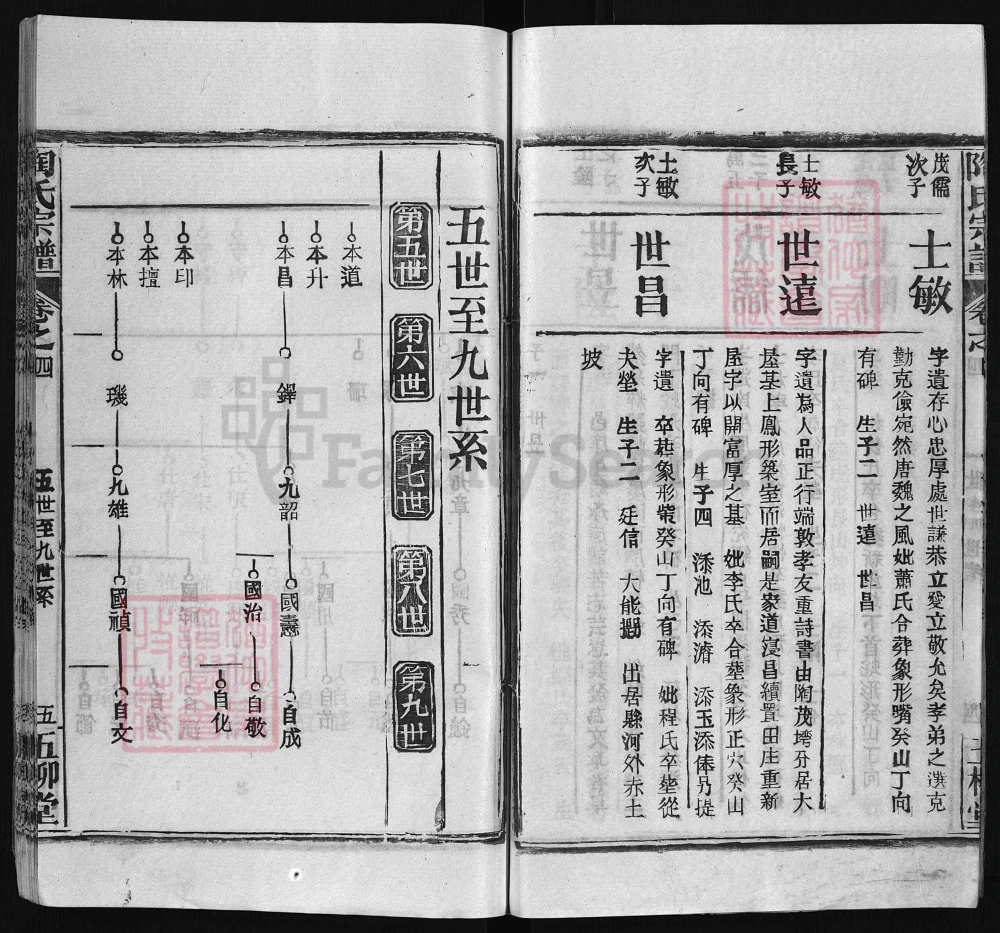 茂儒次子
士敏
字遺存心忠厚處世謙恭立愛立敬允矣孝弟之淇克
勤克儉宛然唐魏之風妣蕭氏合葬象形嘴癸山丁向
有碑 生子二 世遠 世昌
士敏長子
世遠
字遺為人品正行端敦孝友重詩書由陶茂塆分居大
屋基上鳳形築室而居嗣是家道寖昌續置田庄重新
屋字以開富厚之基 妣李氏卒合塋象形正穴癸山
丁向有碑 生子四 添池 添濬 添玉添俸乃提
士敏次子
世昌
字遺 卒葬象形嘴癸山丁向有碑 妣程氏卒塋從
夫塋 生子二 廷信 大能 出居縣河外赤土
坡
陶氏宗譜 卷之四
五世至九世系
第五世
第六世
第七世
第八世
第九世
本道
本升
本昌 鐸 九韶 國燾 自成
國治 自敬
自化
本印
本擅
本林 璣 九雄 國禎 自文
陶氏宗譜 卷之四 五世至九世系 五 五柳堂
FamilySearch